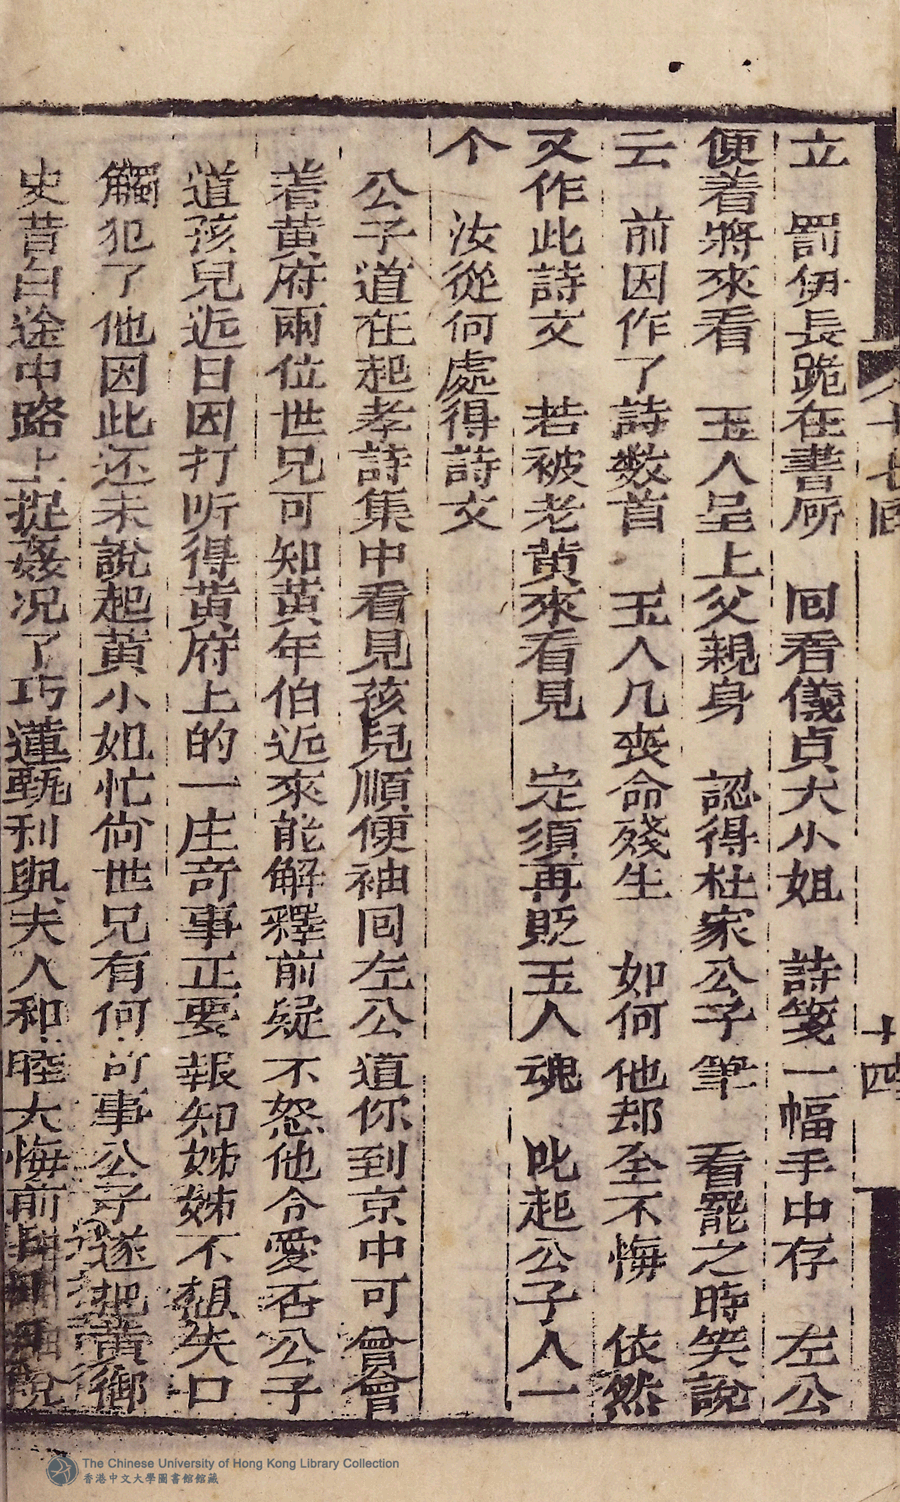 八十七回
十四
立　罰伊長跪在書房　囘看儀貞大小姐　詩箋一幅手中存　左公
便着將來看　玉人呈上父親身　認得杜家公子筆　看罷之時笑說
云　前因作了詩数首　玉人几丧命殘生　如何他却至不悔　依然
又作此詩文　若被老黄來看見　定須再貶玉人魂　叱起公子人一
个　汝從何處得詩文
公子道在起孝詩集中看見孩兒順便袖囘左公道你到京中可曾會
着黄府兩位世兄可知黄年伯近來能解釋前疑不怒他令愛否公子
道孩兒近日因打听得黄府上的一庄竒事正要報知姊姊不想失口
觸犯了他因此还未說起黄小如忙倘世兄有何竒事公子遂把黄御
史昔白途中路上捉姦况了巧蓮甄利與夫人和睦大悔前
說
The Chinese University of Hong Kong Library Collection
香港中文大學圖書館館藏